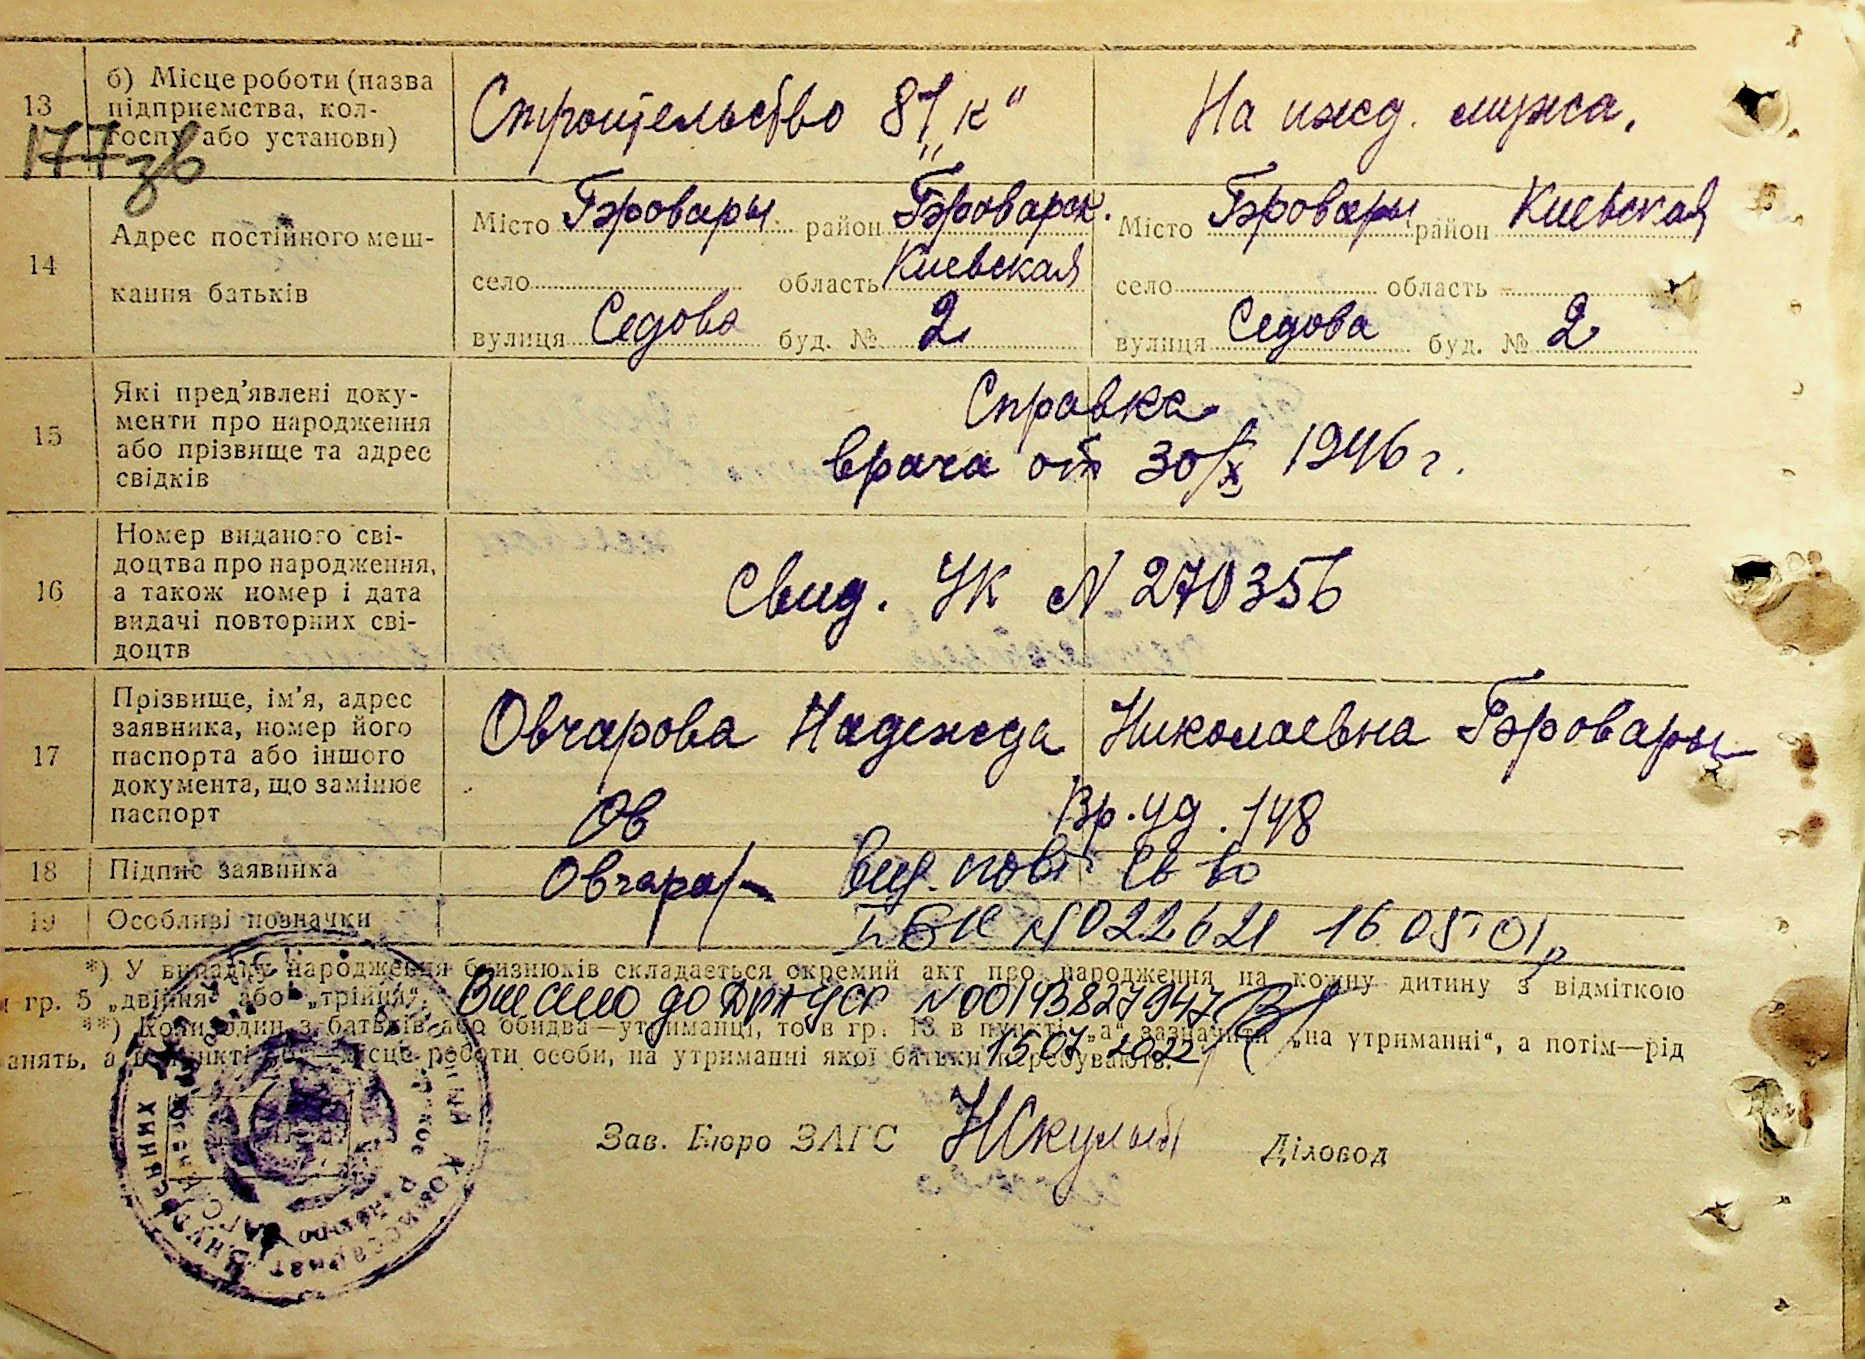 13 б) Місце роботи (назва підприємства, колгоспу або установи)
Строительство 87 „к“
На ижд. мужа.
177зв
14 Адрес постійного мешкання батьків
Місто Бровары район Броварск. Місто Бровары район Киевская
село область Киевская село область
вулиця Седова буд. № 2 вулиця Седова буд. № 2
15 Які пред'явлені документи про народження або прізвище та адрес свідків
Справка
врача от 30/X 1946 г.
16 Номер виданого свідоцтва про народження, а також номер і дата видачі повторних свідоцтв
Свид. УК N 270356
17 Прізвище, ім'я, адрес заявника, номер його паспорта або іншого документа, що замінює паспорт
Овчарова Надежда Николаевна Бровары
Ов Вр. уд. 148
18 Підпис заявника
Овчаро Вид. повт св во
19 Особливі позначки
І-БК N022621 16 05 01р
*) У випадку народження близнюків складається окремий акт про народження на кожну дитину з відміткою
гр. 5 „двійня“ або „трійця“.
Внесено до ДРАЦСГ N00143827947
**) Коли один з батьків або обидва—утриманці, то в гр. 13 в пункті „а“ зазначити „на утриманні“, а потім—рід
занять, а в пункті —місце роботи особи, на утриманні якої батьки перебувають.
15 07 2022
Зав. Бюро ЗАГС Діловод